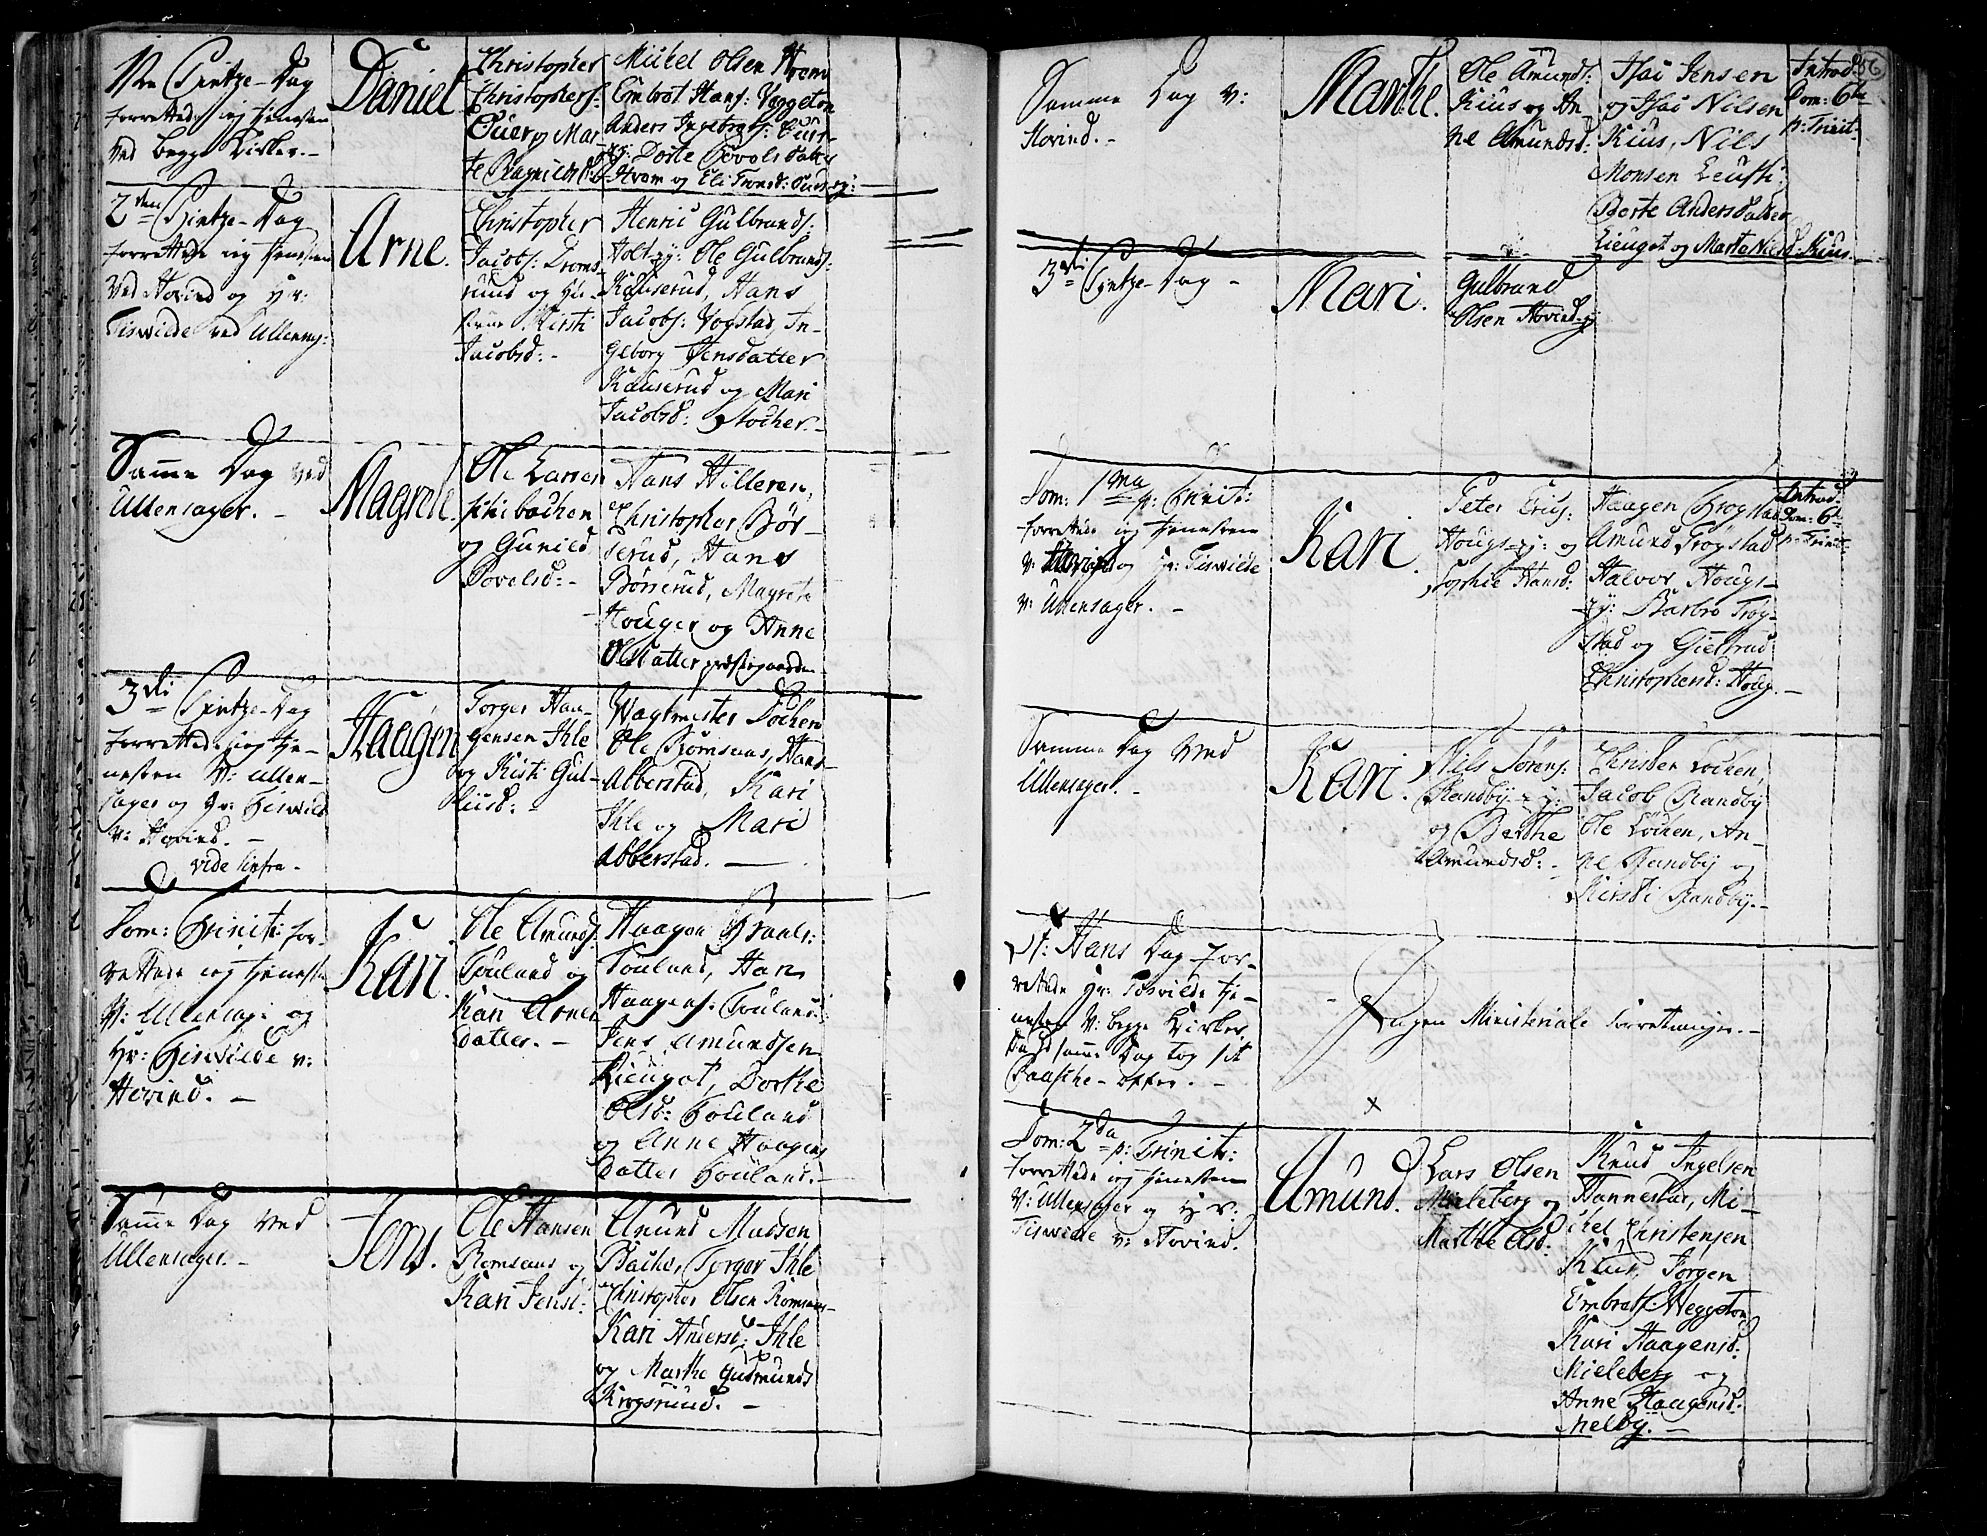 1ste Pintze-Dag
forrettede jeg tienesten
ved begge Kirker. -
Daniel
Christopher
Christophers:
og Mar-
te
Mickel Olsen Hrom
Embret Hans: Veggeton
Anders Ingebrets:
Dorte Povels Datter
Hrom og Eli Trond:
2den Pintze-Dag
forrettede jeg tienesten
ved Hovind og Hr:
Tiswilde ved Ullensag:
Arne.
Christopher
Jacobs: Droms-
rud og Hu-
struе Kirsti
Jacobsd: -
Henric Gulbrands:
Holt-ey: Ole Gulbrands:
Kauserud, Hans
Jacobs: Vogstad, In-
geborg Jensdatter
Kauserud og Mari
Jacobsd: Aacher. -
Samme Dag ved
Ullensager. -
Magrete
Ole Larsen
og Gunild
Povelsd: -
Hans Hilleren,
Christopher Bör-
serud, Hans
Börserud, Magrete
Houger og Anne
Ols Datter præstegaarden
3die Pintze-Dag
forrettede jeg tje-
nesten v: Ullen-
sager og Hr: Tiswilde
v: Hovind. -
vide infra -
Haagen
Torger Haa-
gensen Ihle
og Kisti Gul-
Wagtmester Lochen
Ole Romsaas, Hans
Abberstad, Kari
Ihle og Mari
Abberstad. -
Dom: Trinit: for-
rettede jeg tjenesten
v: Ullensag: og
Hr: Tiswilde v:
Hovind. -
Kari.
Ole Amunds:
Touland og
Kari Arne
Datter. -
Haagen
Touland, Hans
Haagens: Touland
Jens Amundsen
Lieugot, Dorthe
Olsd: Touland
og Anne Haagens
Datter Touland. -
Samme Dag ved
Ullensager. -
Jens.
Ole Hansen
Romsaas og
Kari Jensd:
Amund Madsen
Bache, Torger Ihle
Christopher Olsen Romsaas
Kari Andersd: Ihle
og Marthe Gudmunds
Krogsrud. -
56
Samme Dag v:
Hovind. -
Marthe.
Ole Amunds:
Kius og An-
ne Amundsd:
Isac Jensen
og Isac Nilsen
Kius, Nils
Monsen Leusti:
Borte Anders Datter
Lieugot og Marta Nilsd: Kius.
Introd:
Dom: 6te
p: Trinit:
3die Pintze-Dag -
Mari.
Gulbrand
Olsen Hovind-ey
Dom: 1ma p: Trinit:
forrettede jeg tienesten
v: Hovind og Hr: Tiswilde
v: Ullensager. -
Kari.
Peter
Hougs-ey: og
Sophie Hansd:
Haagen Trogstad
Amund Trogstad
Halvor Hougs-
ey: Barbro Trog-
stad og Gieltrud
Christophersd: Houg. -
Introd:
Dom: 6te
p: Trinit:
Samme Dag ved
Ullensager. -
Kari.
Nils Sörens:
Randby-ey:
og Berthe
Amundsd: -
Christen Lochen,
Jacob Randby
Ole Lochen, An-
ne Randby og
Kirsti Randby. -
St: Hans Dag for-
rettede Hr: Tiswilde tje-
nesten v: begge Kirker.
samme Dag tog sit
Paaske-offer. -
Ingen Ministeriale Forretninger. -
Dom: 2da p: Trinit:
forrettede jeg tienesten
v: Ullensager og Hr:
Tiswilde v: Hovind.
Amund.
Lars Olsen
Mieleberg og
Marthe Olsd:
Knud Ingelsen
Hannestad, Mi-
chel Christensen
Kius, Jörgen
Embrets: Veggeton
Kari Haagensd:
Mieleberg og
Anne Haagensd:
Melby. -